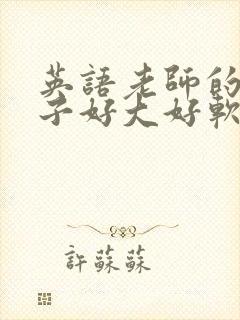 英語老師的
子好大好軟
許蘇蘇